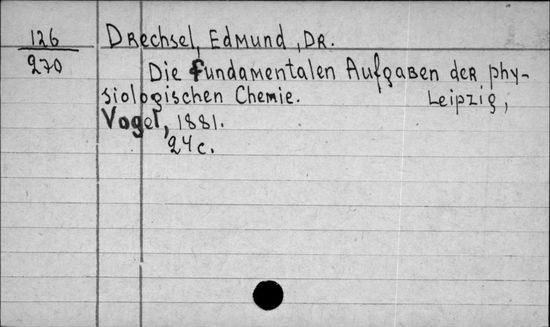 126 Drechsel, Edmund, Dr.
270 Die fundamentalen Aufgaben der phy-
siologischen Chemie. Leipzig,
Vogel, 1881.
24 c.